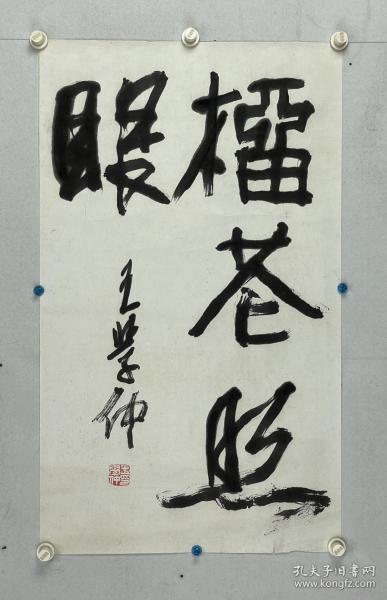 榴花照
眼
王学仲
孔夫子旧书网
www.kongfz.com